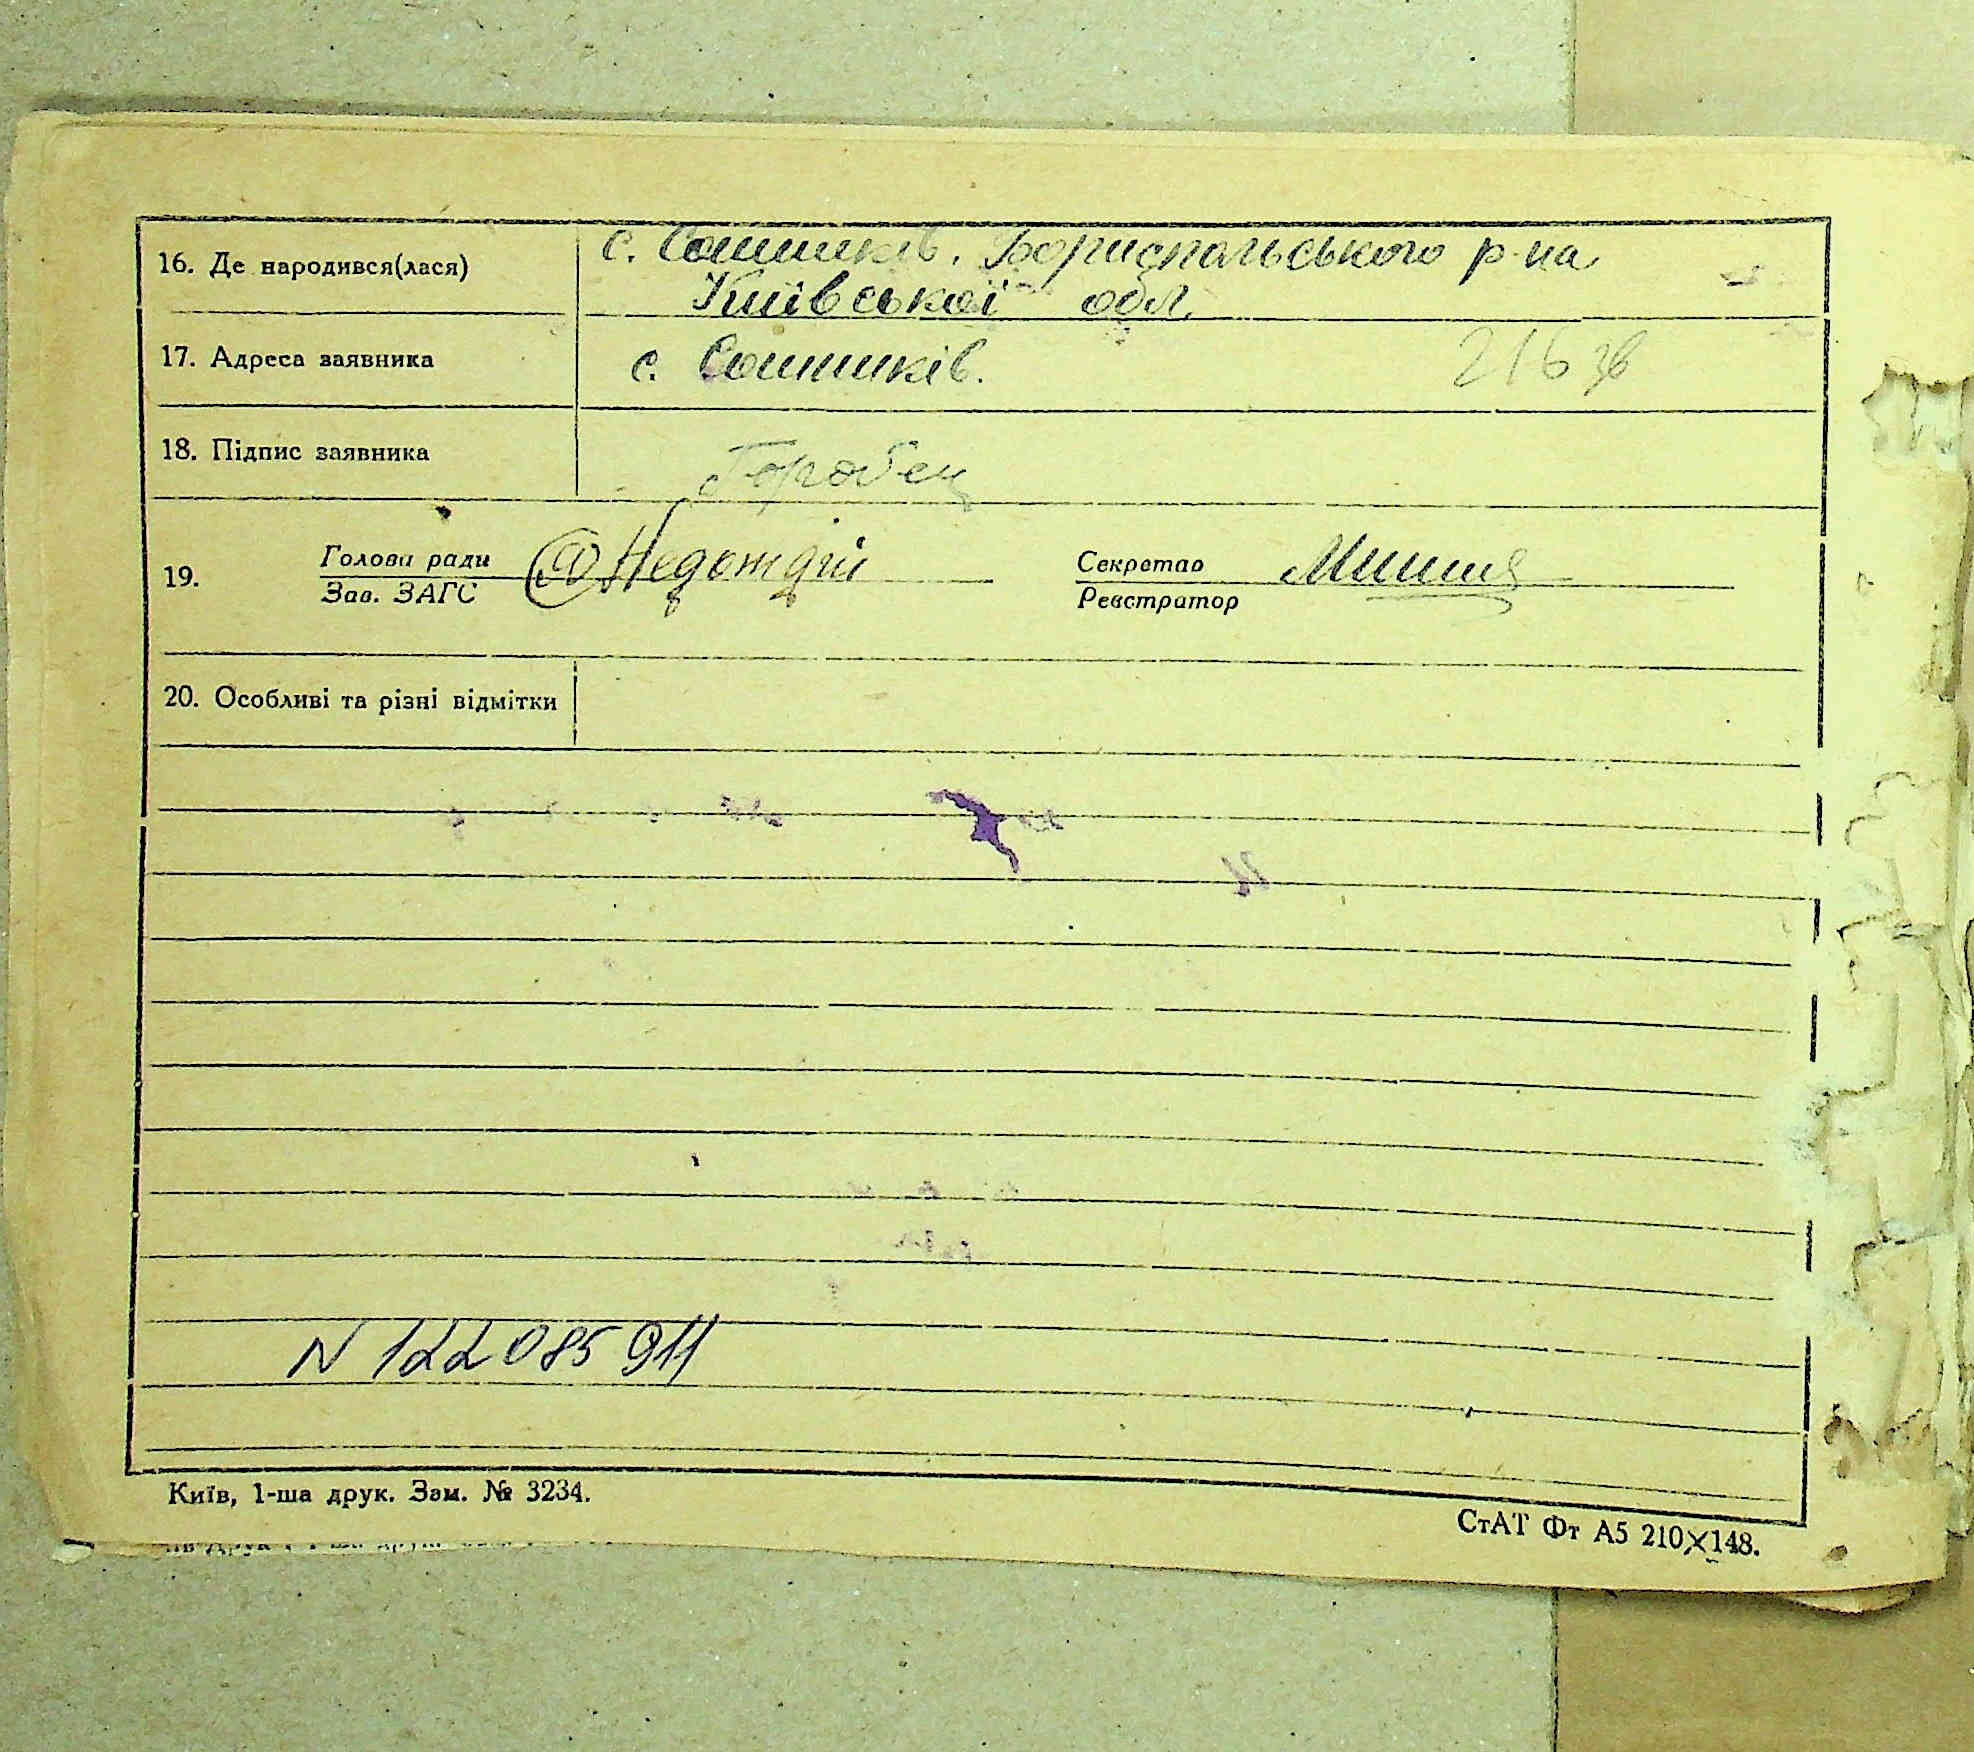 16. Де народився(лася) с. Сошників. Бориспольського р-на
Київської обл.
17. Адреса заявника с. Сошників. 216 зв
18. Підпис заявника Горобец
19. Голова ради Недождій Секретар
Зав. ЗАГС Реєстратор
20. Особливі та різні відмітки
N 122085911
Київ, 1-ша друк. Зам. № 3234.
СтАТ Фт А5 210×148.